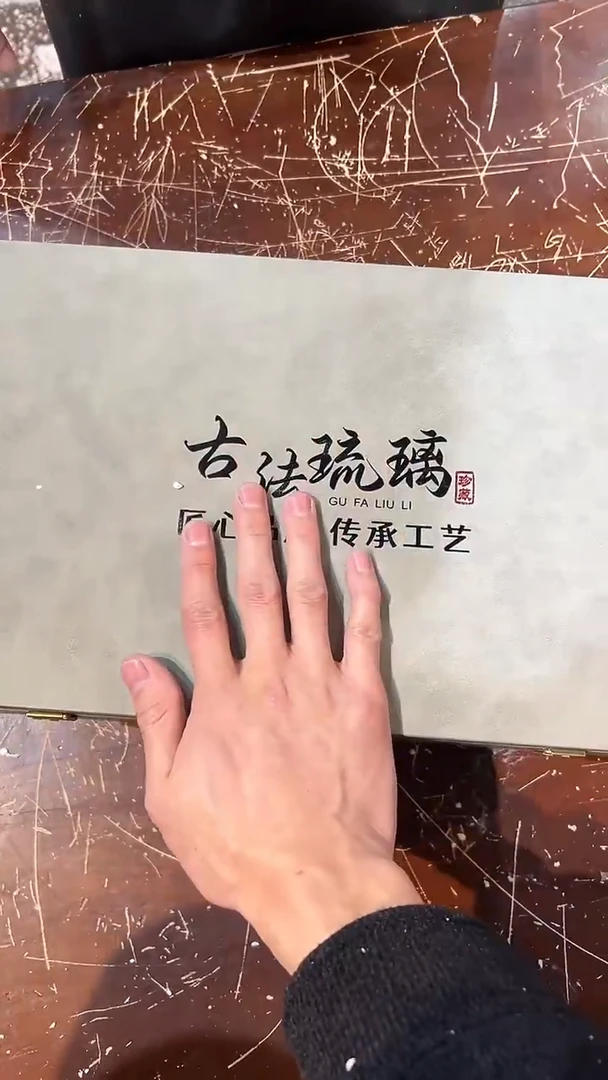 古法琉璃
珍藏
GU FA LIU LI
匠心 传承工艺